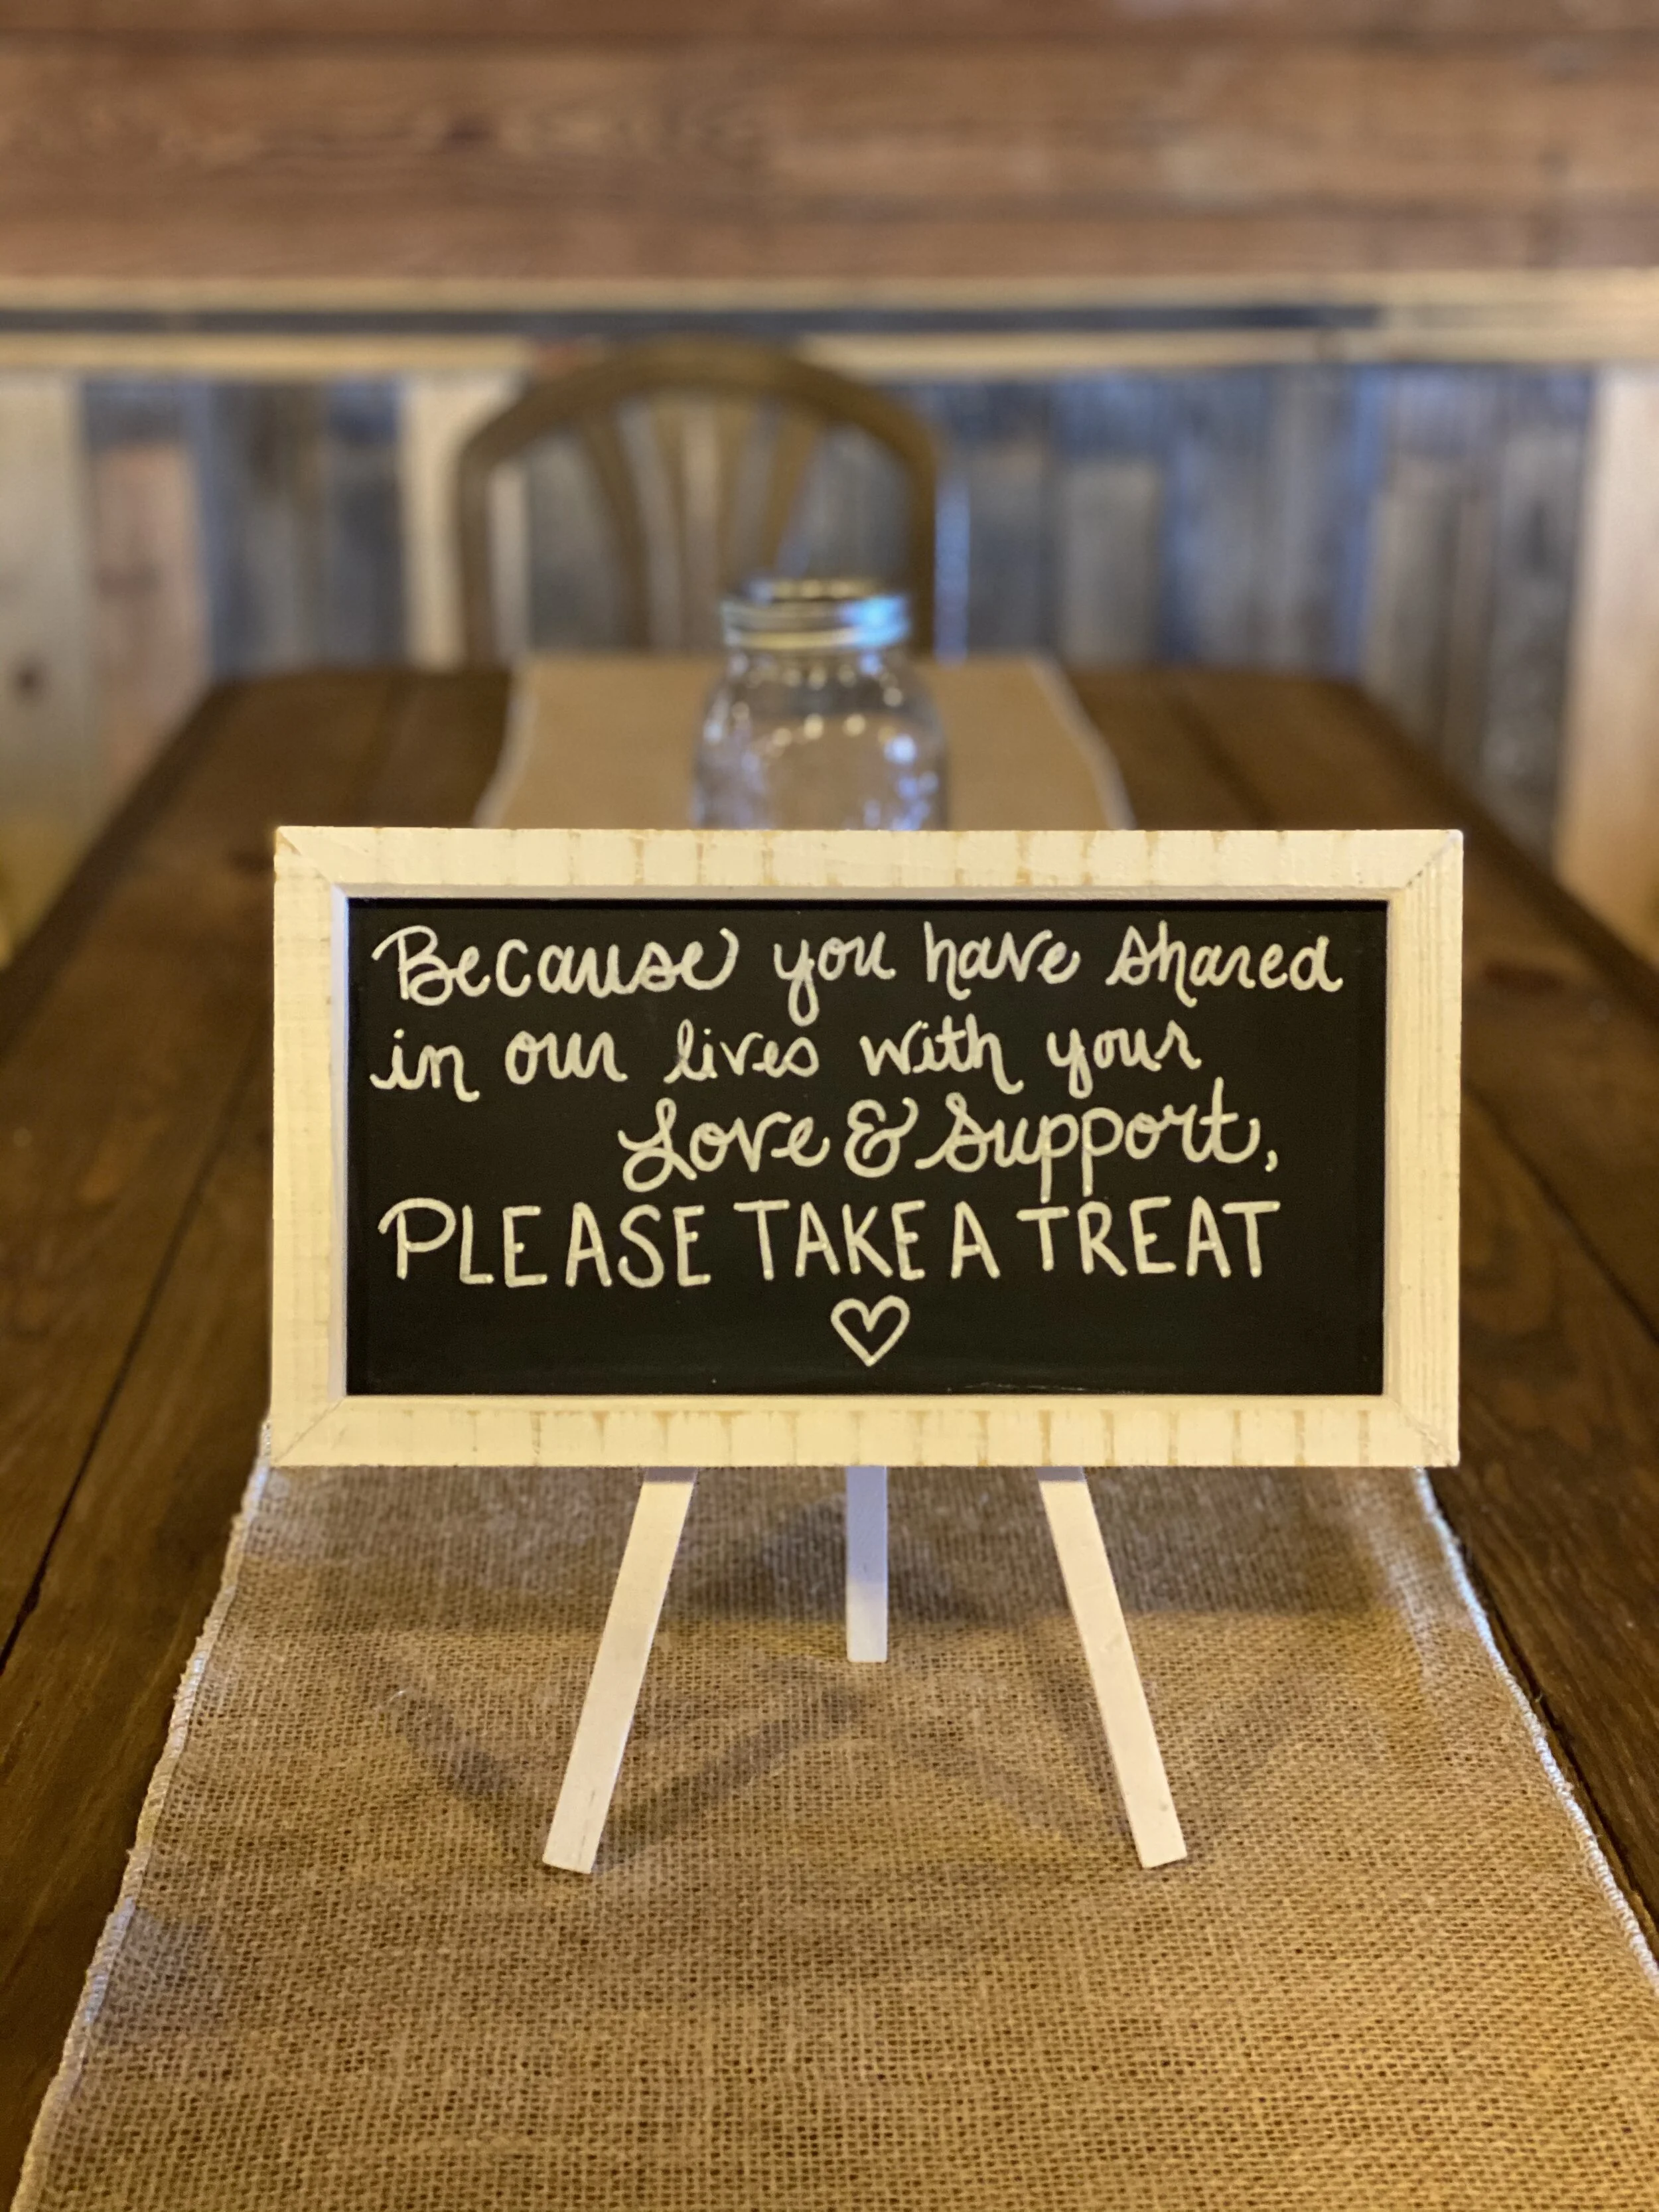 Because you have shared
in our lives with your
Love & Support,
PLEASE TAKE A TREAT